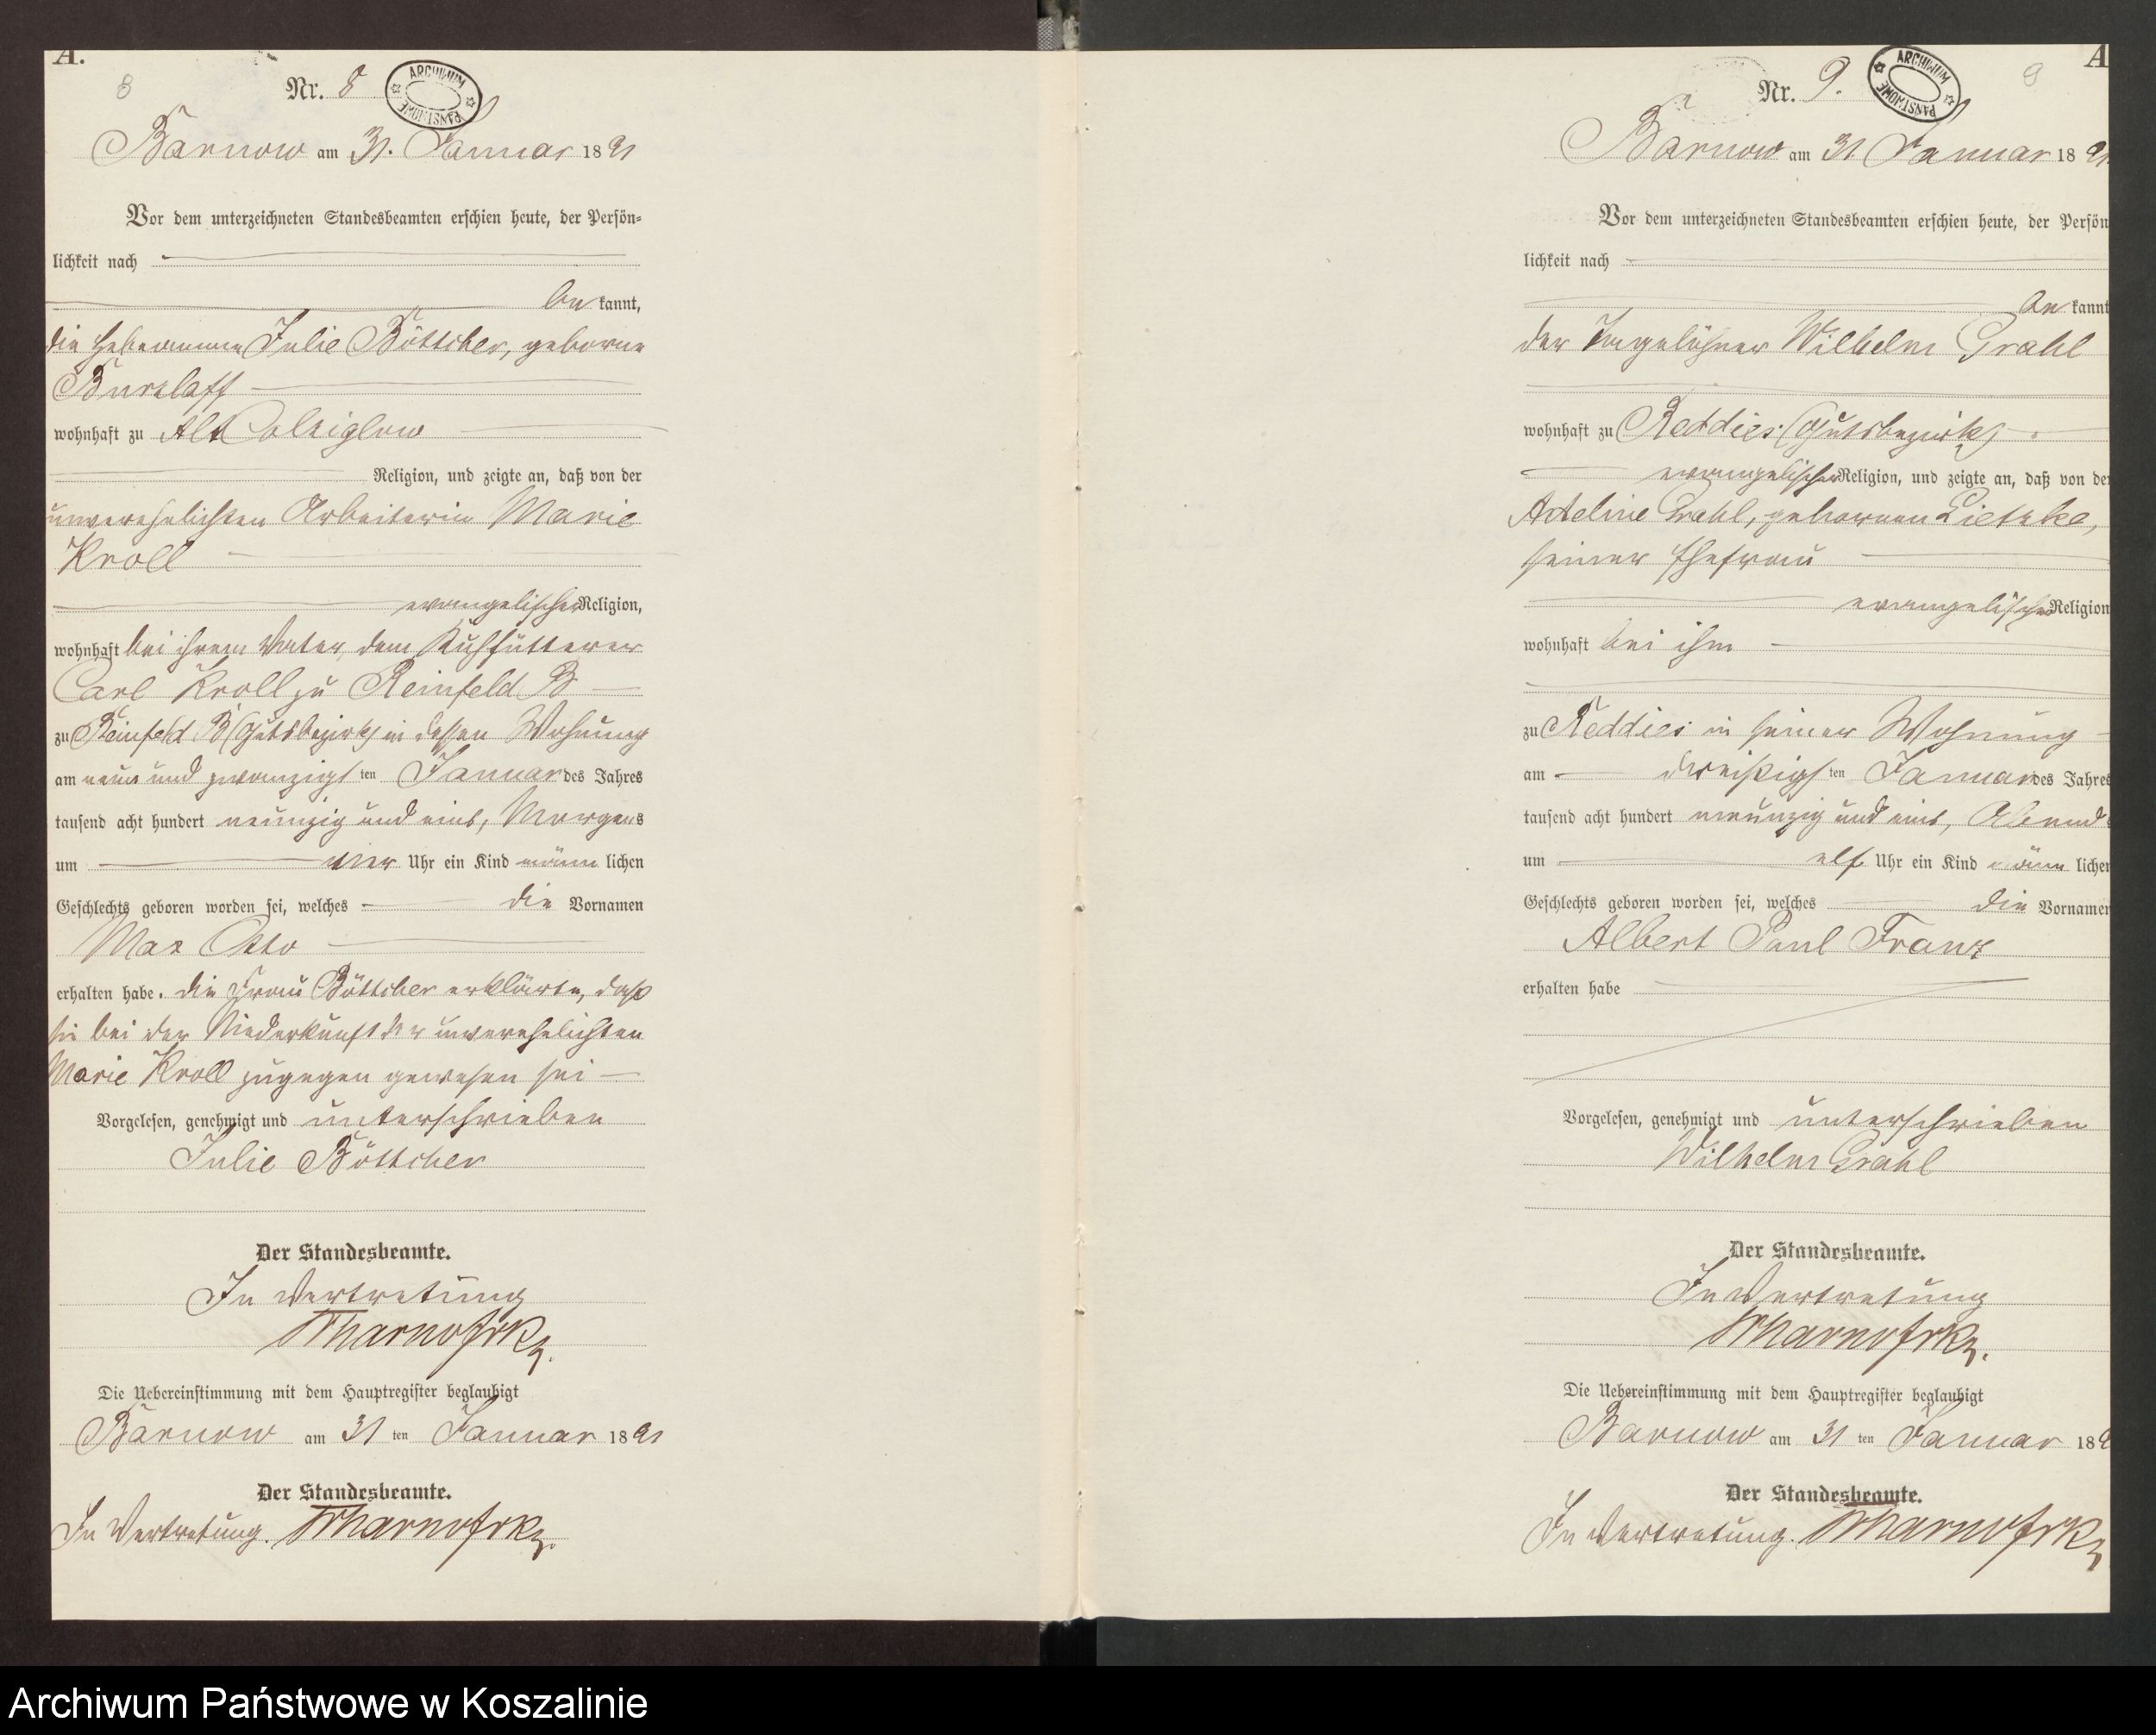 A.
8
Nr. 8
ARCHIWUM PAŃSTWOWE
Barnow am 31. Januar 1891
Vor dem unterzeichneten Standesbeamten erschien heute, der Persön-
lichkeit nach
be kannt,
die Hebeamme Julie Böttcher, geborne
Burzlaff
wohnhaft zu Alt Colziglow
Religion, und zeigte an, daß von der
unverehelichten Arbeiterin Marie
Kroll
evangelischer Religion,
wohnhaft bei ihrem Vater, dem Kuhfütterer
Carl Kroll zu Reinfeld B
zu Reinfeld B (Gutsbezirk) in dessen Wohnung
am neun und zwanzigs ten Januar des Jahres
tausend acht hundert neunzig und eins, Morgens
um vier Uhr ein Kind männ lichen
Geschlechts geboren worden sei, welches die Vornamen
Max Otto
erhalten habe. Die Frau Böttcher erklärte, daß
sie bei der Niederkunft der unverehelichten
Marie Kroll zugegen gewesen sei
Vorgelesen, genehmigt und unterschrieben
Julie Böttcher
Der Standesbeamte.
In Vertretung
Die Uebereinstimmung mit dem Hauptregister beglaubigt
Barnow am 31 ten Januar 1891
Der Standesbeamte.
In Vertretung.
A
9
Nr. 9.
ARCHIWUM PAŃSTWOWE
Barnow am 31. Januar 1891
Vor dem unterzeichneten Standesbeamten erschien heute, der Persön
lichkeit nach
be kannt
der Tagelöhner Wilhelm Grahl
wohnhaft zu Reddies (Gutsbezirk)
evangelischer Religion, und zeigte an, daß von der
Adeline Grahl, gebornen Lietzke,
seiner Ehefrau
evangelischer Religion
wohnhaft bei ihm
zu Reddies in seiner Wohnung
am dreißigs ten Januar des Jahres
tausend acht hundert neunzig und eins, Abends
um elf Uhr ein Kind männ lichen
Geschlechts geboren worden sei, welches die Vornamen
Albert Paul Franz
erhalten habe
Vorgelesen, genehmigt und unterschrieben
Wilhelm Grahl
Der Standesbeamte.
In Vertretung
Die Uebereinstimmung mit dem Hauptregister beglaubigt
Barnow am 31 ten Januar 189
Der Standesbeamte.
In Vertretung.
Archiwum Państwowe w Koszalinie